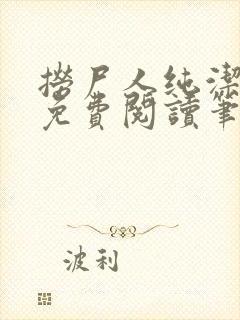 撈尸人純潔
免費閱讀筆
波利